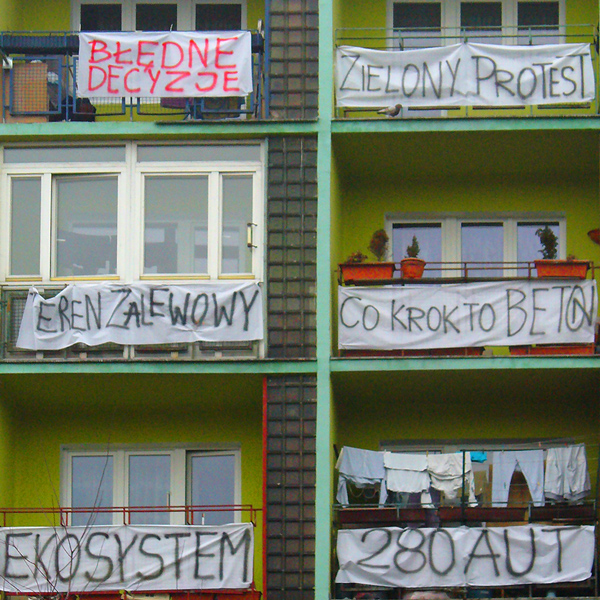 BŁĘDNE
DECYZJE
ZIELONY PROTEST
TEREN ZALEWOWY
CO KROK TO BETON
EKOSYSTEM
280 AUT